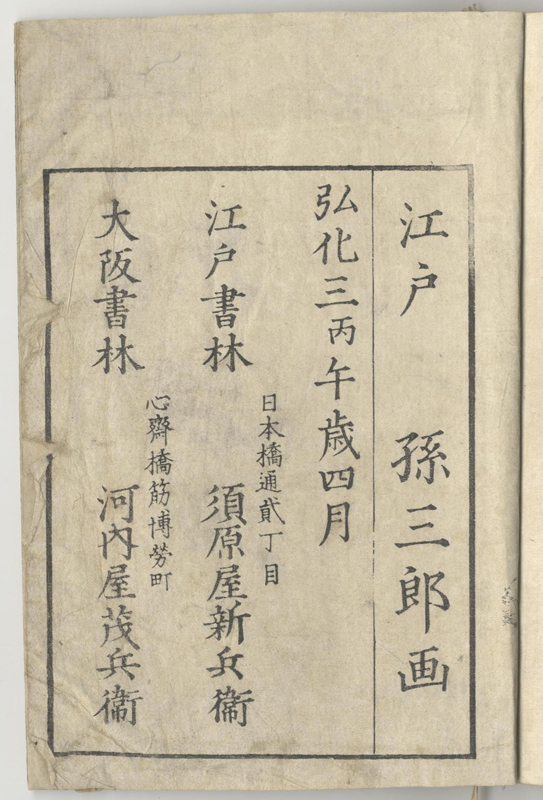 江戸 孫三郎画
弘化三丙午歳四月
江戸書林
日本橋通貳丁目
須原屋新兵衞
大阪書林
心齋橋筋博労町
河内屋茂兵衞